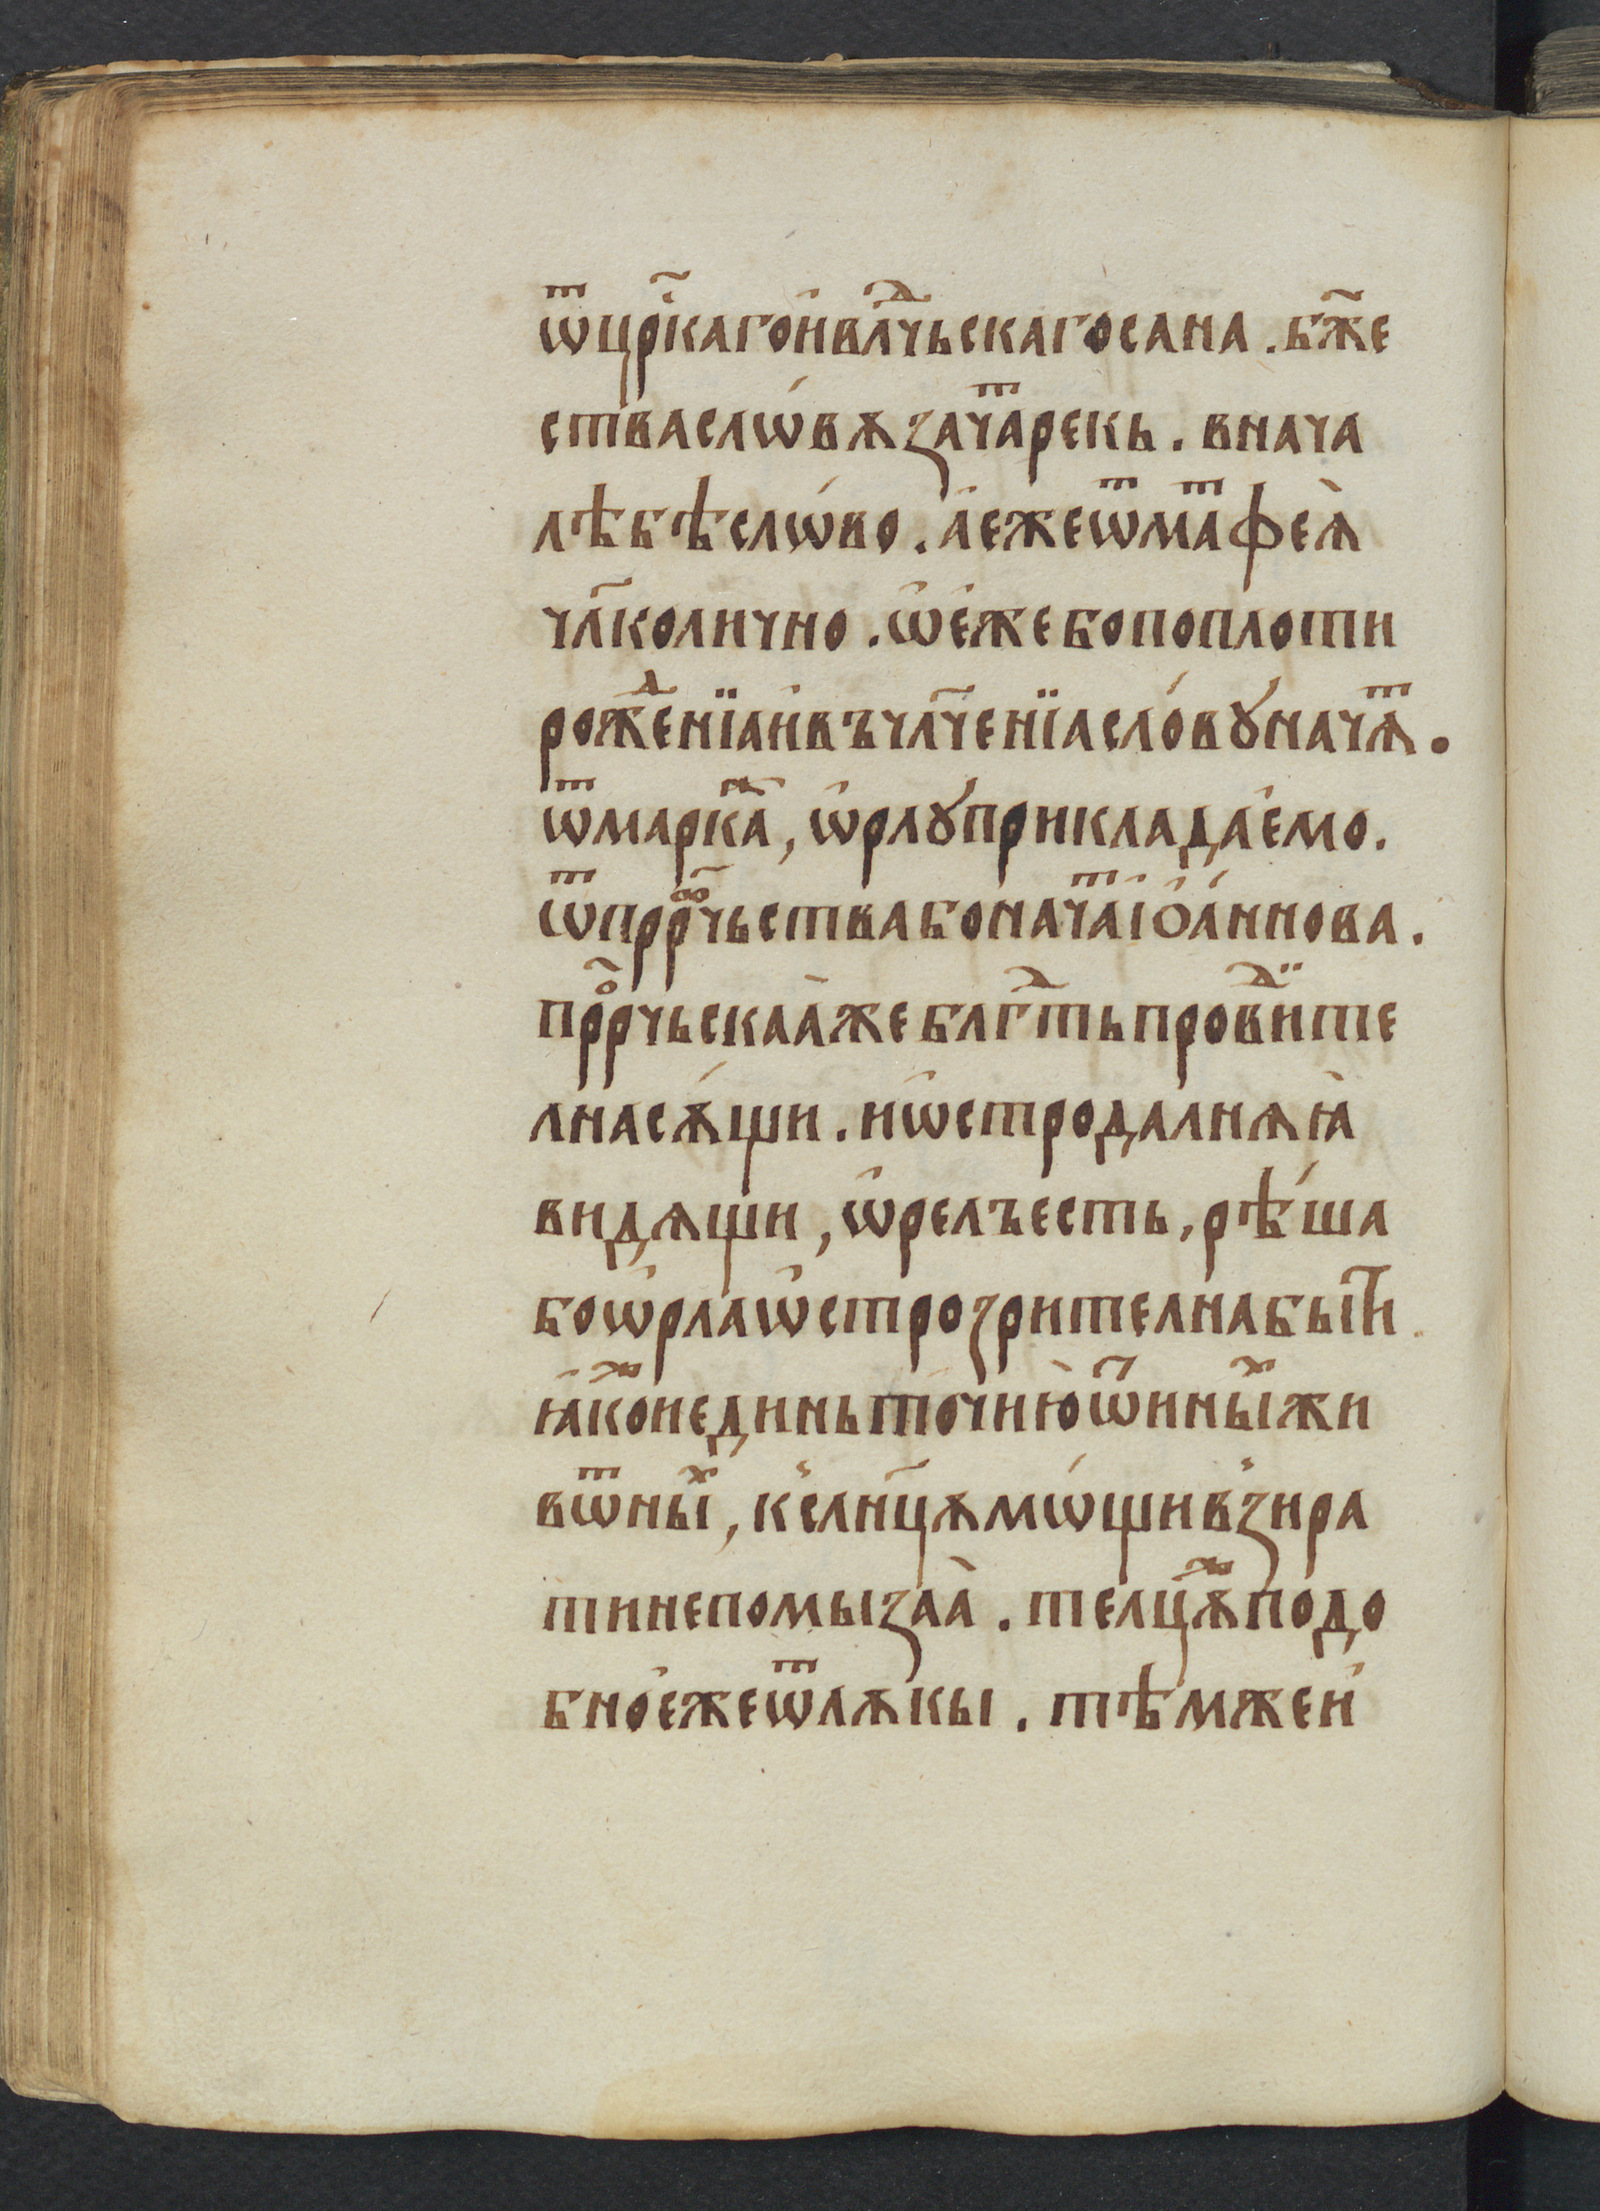 ѿцр҃кагои҆вл҇дчьскагосана . бж҃е
ства слѡ́вѫзачⷮарекь . внача
лѣбѣслѡ́во . а҆ежеѿмаⷮфеѧ̀
чл҃количио . ѡ҆е҆жебопоплоти
рожⷣенїаи҆въчл҃ченїасло́вꙋначѧⷮ .
ѿмаркⷤа , ѡ҆рлꙋ́прикладае҆мо .
ѿпрⷪрⷪ҇чьствабоначаⷮі҆ѻа́ннова .
прⷪ҇рчьскаѧ̀жеблгⷣтьпровиⷣте
лнасѫ́щи . иѡ҆стродалнѧꙗ̀
видѧщи , ѡ҆релъесть , рѣ́ша
боѡ҆рлаѡ҆строзрителнабы́ти .
ꙗ҆коⷤнединьточию̀ѿины́ⷯжи
вѿныⷯ , кслн҃цѫмѡ́щивзира
тинепомызаѧ̀ . телцѫⷤподо
бное҆жеѿлѫкы . тѣмжеи҆